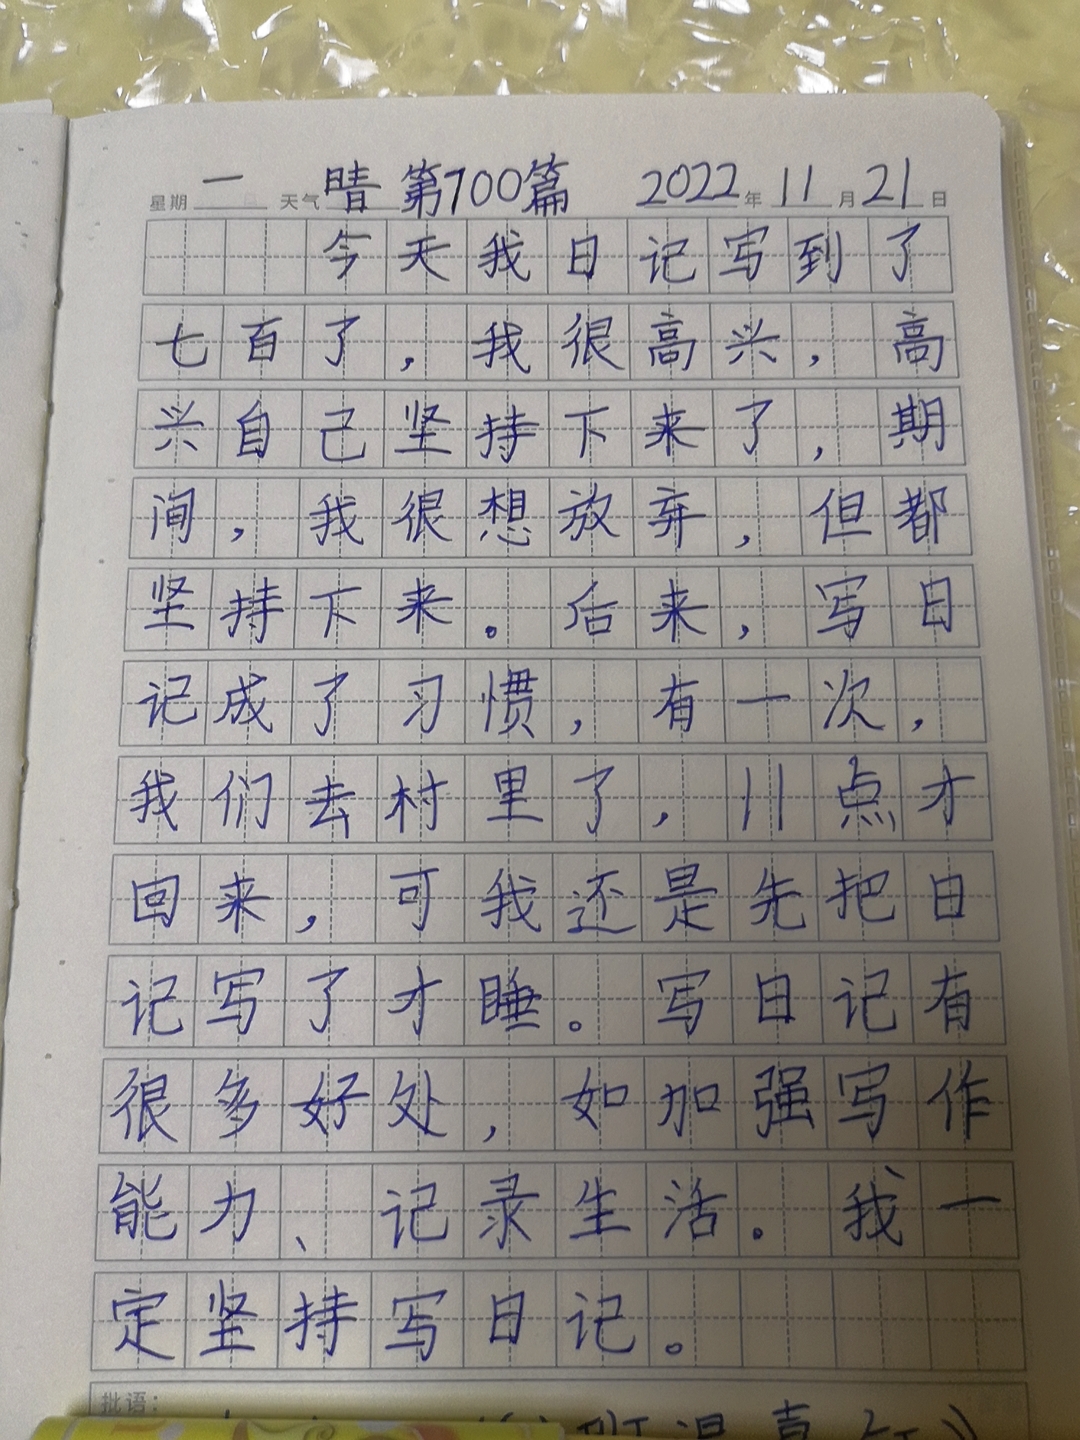 星期 一 天气 晴 第700篇 2022年 11月21日
今天我日记写到了
七百了，我很高兴，高
兴自己坚持下来了，期
间，我很想放弃，但都
坚持下来。后来，写日
记成了习惯，有一次，
我们去村里了，11点才
回来，可我还是先把日
记写了才睡。写日记有
很多好处，如加强写作
能力、记录生活。我一
定坚持写日记。
批语：